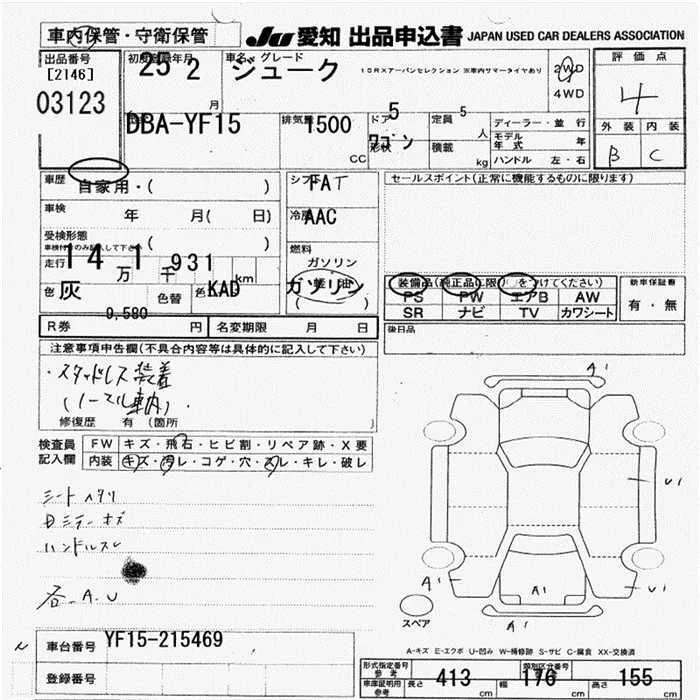 車内保管・守衛保管
JU 愛知 出品申込書 JAPAN USED CAR DEALERS ASSOCIATION
出品番号
[2146]
03123
初度登録年月
25 2
月
車名・グレード
ジューク
15RXアーバンセレクション ※車内サマータイヤあり
2WD
4WD
評価点
4
外装 内装
B C
DBA-YF15
排気量
1500
CC
ドア 5
形状 ワゴン
定員 5 人
積載 kg
ディーラー・並行
モデル年式 年
ハンドル 左・右
車歴
自家用・( )
車検 年 月( 日)
受検形態
車検付きのみ記入して下さい
( )
走行
14万1千931km
色 灰 色替 色 KAD
シフト FAT
冷房 AAC
燃料
ガソリン
軽油
ガソリン
( )
セールスポイント(正常に機能するものに限ります)
装備品(純正品に限り○をつけてください)
PS PW エアB AW
SR ナビ TV カワシート
新車保証書
有・無
後日品
R券 9,580 円
名変期限 月 日
注意事項申告欄(不具合内容等は具体的に記入して下さい)
・スタッドレス装着
(ノーマル車内)
修復歴 有(箇所 )
検査員記入欄
FW キズ・飛石・ヒビ割・リペア跡・X要
内装 キズ・汚レ・コゲ・穴・スレ・キレ・破レ
シートヘタリ
ハンドルスレ
各-A.U
A1
U1
A1
A1
U1
A1
スペア
A-キズ E-エクボ U-凹み W-補修跡 S-サビ C-腐食 XX-交換済
車台番号 YF15-215469
登録番号
形式指定番号
参考
類別区分番号
車庫証明用
参考
長さ 413 cm
幅 176 cm
高さ 155 cm